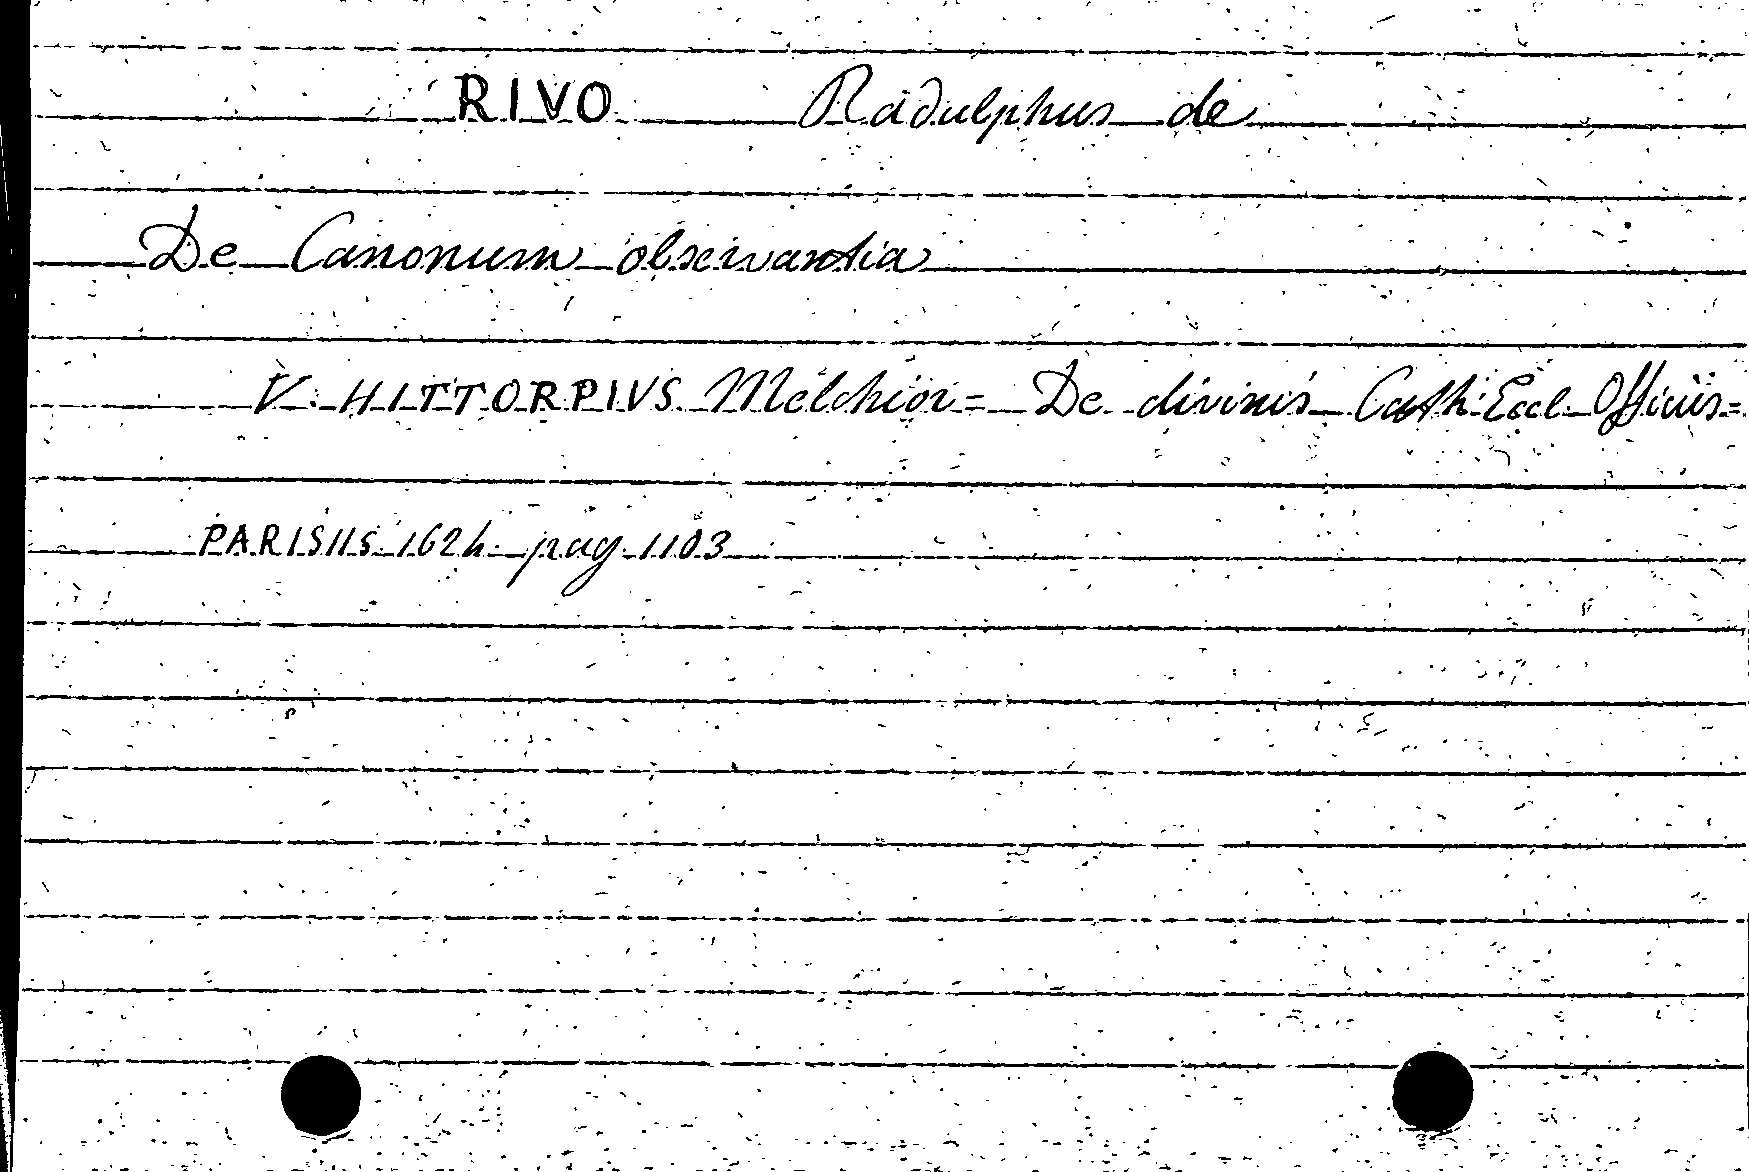 RIVO Radulphus de
De Canonum observantia
V. HITTORPIVS Melchior = De divinis Cath. Eccl. Officiis =
PARISIIS 1624 pag. 1103